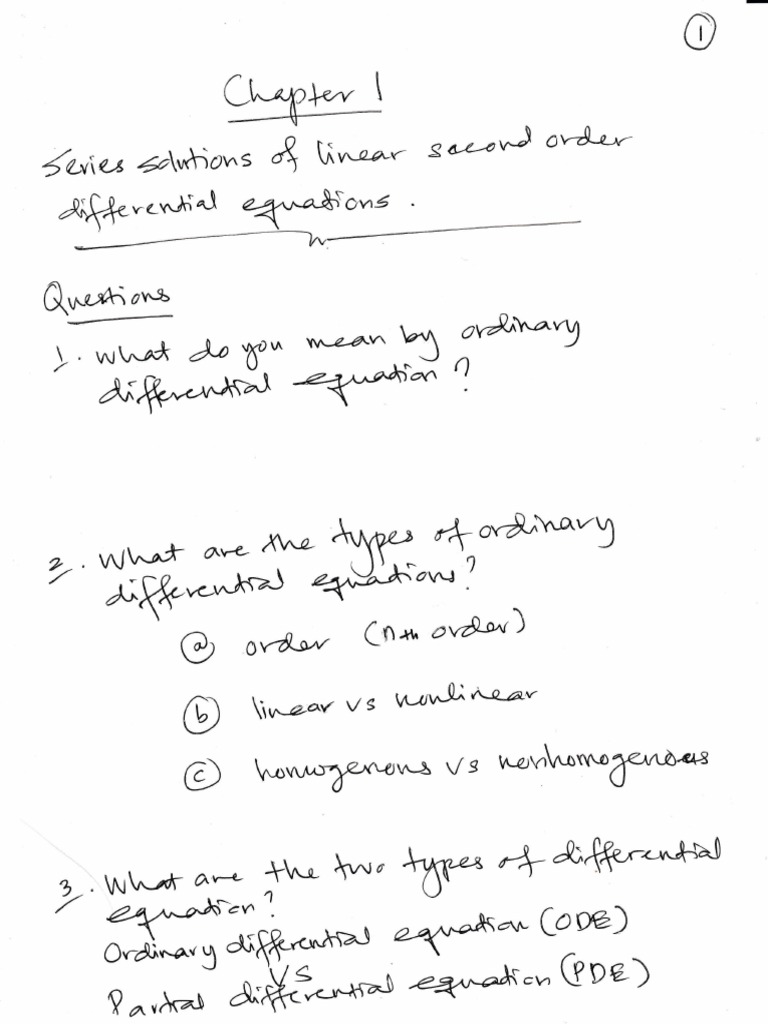 1
Chapter 1
Series solutions of linear second order
differential equations.
Questions
1. What do you mean by ordinary
differential equation?
2. What are the types of ordinary
differential equations?
a order (nth order)
b linear vs nonlinear
c homogenous vs nonhomogenous
3. What are the two types of differential
equation?
Ordinary differential equation (ODE)
VS
Partial differential equation (PDE)